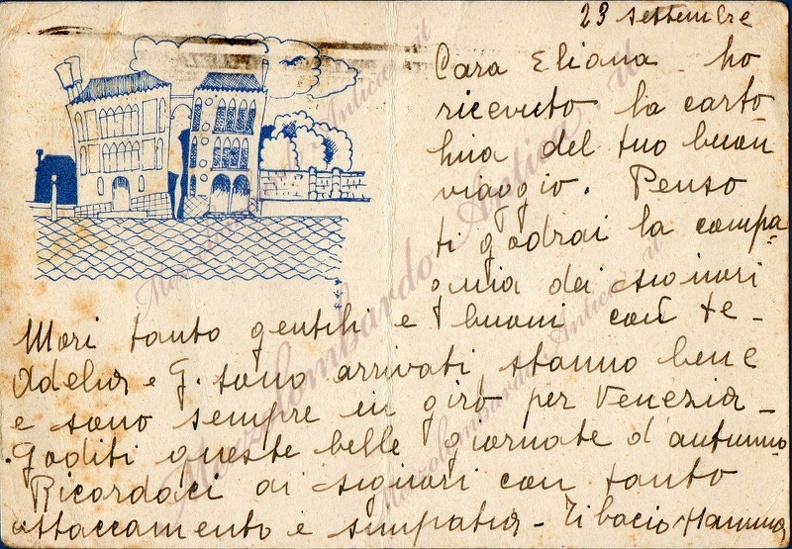 23 settembre
Cara Eliana ho
ricevuto la carto
lina del tuo buon
viaggio. Penso
ti godrai la compa-
gnia dei signori
Mori tanto gentili e buoni con te -
Adelia e G. sono arrivati, stanno bene
e sono sempre in giro per Venezia -
Goditi queste belle giornate d'autunno
Ricordaci ai signori con tanto
attaccamento e simpatia - Ti bacio Mamma
Mezzolombardo Antica.it
Mezzolombardo Antica.it
Mezzolombardo Antica.it